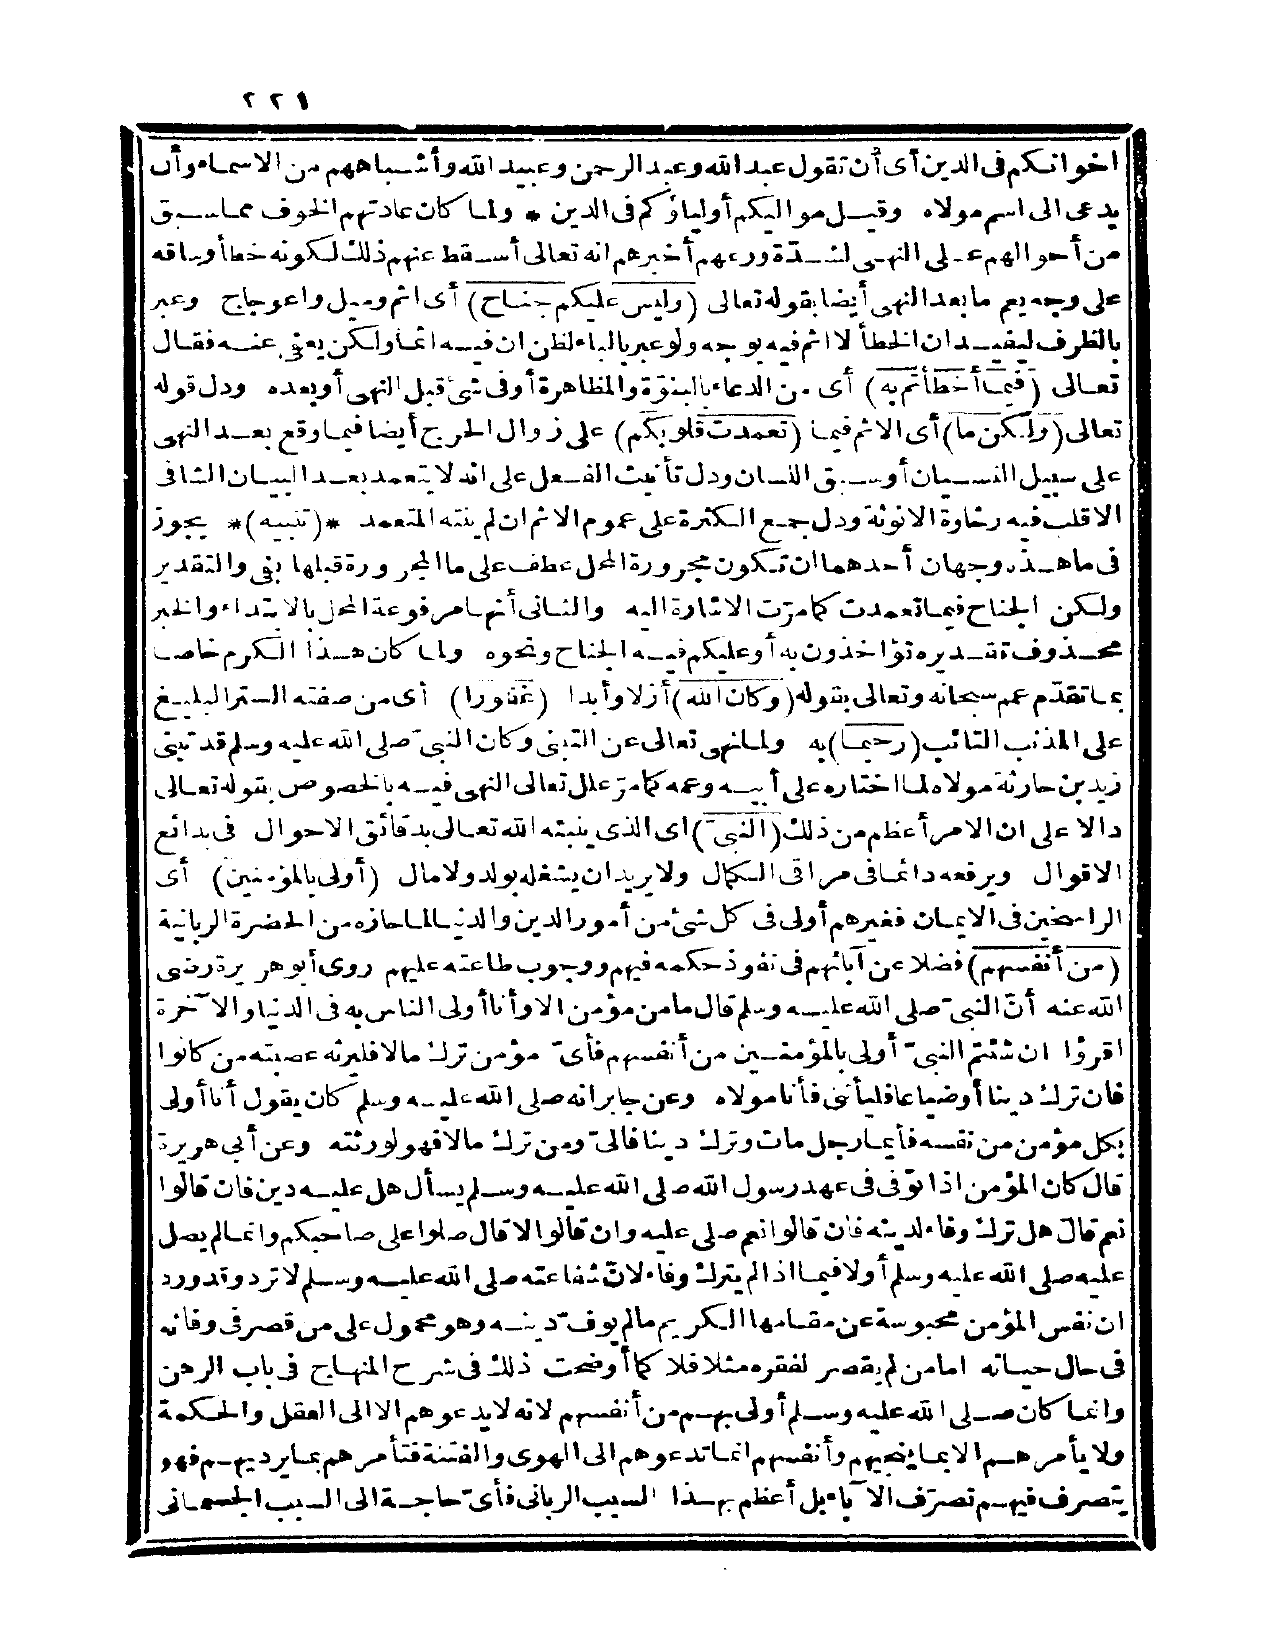 ٢٢١
اخوانكم فى الدين أى أن تقول عبد الله وعبد الرحمن وعبيد الله وأشباههم من الاسماء وأن
يدعى الى اسم مولاه وقيل مواليكم أولياؤكم فى الدين * ولما كان عادتهم الخوف مما سبق
من أحوالهم على النهى لشدة ورعهم أخبرهم انه تعالى أسقط عنهم ذلك لكونه خطأ وساقه
على وجه يعم ما بعد النهى أيضا بقوله تعالى (وليس عليكم جناح) أى اثم وميل واعوجاج وعبر
بالظرف ليفيد ان الخطأ لا اثم فيه بوجه ولو عبر بالباء لظن ان فيه اثما ولكن يعفى عنه فقال
تعالى (فيما أخطأتم به) أى من الدعاء بالبنوّة والمظاهرة أوفى شئ قبل النهى أوبعده ودل قوله
تعالى (ولكن ما) أى الاثم فيما (تعمدت قلوبكم) على زوال الحرج أيضا فيما وقع بعد النهى
على سبيل النسيان أوسبق اللسان ودل تأنيث الفعل على انه لا يتعمد بعد البيان الشافى
الاقلب فيه رخاوة الانوثة ودل جمع الكثرة على عموم الاثم ان لم ينته المتعمد *(تنبيه)* يجوز
فى ما هذه وجهان أحدهما ان تكون مجرورة المحل عطف على ما المجرورة قبلها بفى والتقدير
ولكن الجناح فيما تعمدت كما مرّت الاشارة اليه والثانى أنها مرفوعة المحل بالابتداء والخبر
محذوف تقديره تؤاخذون به أو عليكم فيه الجناح ونحوه ولما كان هذا الكرم خاصا
بما تقدّم عم سبحانه وتعالى بقوله (وكان الله) أزلا وأبدا (غفورا) أى من صفته الستر البليغ
على المذنب التائب (رحيما) به ولما نهى تعالى عن التبنى وكان النبىّ صلى الله عليه وسلم قد تبنى
زيد بن حارثة مولاه لما اختاره على أبيه وعمه كما مرّ علل تعالى النهى فيه بالخصوص بقوله تعالى
دالا على ان الامر أعظم من ذلك (النبىّ) اى الذى ينبئه الله تعالى بدقائق الاحوال فى بدائع
الاقوال ويرفعه دائما فى مراقى الكمال ولا يريد ان يشغله بولد ولا مال (أولى بالمؤمنين) أى
الراسخين فى الايمان فغيرهم أولى فى كل شئ من أمور الدين والدنيا لما حازه من الحضرة الربانية
(من أنفسهم) فضلا عن آبائهم فى نفوذ حكمه فيهم ووجوب طاعته عليهم روى أبو هريرة رضى
الله عنه أنّ النبىّ صلى الله عليه وسلم قال ما من مؤمن الا وأنا أولى الناس به فى الدنيا والآخرة
اقرؤا ان شئتم النبىّ أولى بالمؤمنين من أنفسهم فأىّ مؤمن ترك مالا فليرثه عصبته من كانوا
فان ترك دينا أوضياعا فليأتنى فأنا مولاه وعن جابر انه صلى الله عليه وسلم كان يقول أنا أولى
بكل مؤمن من نفسه فأيما رجل مات وترك دينا فالىّ ومن ترك مالا فهو لورثته وعن أبى هريرة
قال كان المؤمن اذا توفى فى عهد رسول الله صلى الله عليه وسلم يسأل هل عليه دين فان قالوا
نعم قال هل ترك وفاء لدينه فان قالوا نعم صلى عليه وان قالوا لا قال صلوا على صاحبكم وانما لم يصل
عليه صلى الله عليه وسلم أولا فيما اذا لم يترك وفاء لانّ شفاعته صلى الله عليه وسلم لا ترد وقد ورد
ان نفس المؤمن محبوسة عن مقامها الكريم مالم يوفّ دينه وهو محمول على من قصر فى وفائه
فى حال حياته امامن لم يقصر لفقره مثلا فلا كما أوضحت ذلك فى شرح المنهاج فى باب الرهن
وانما كان صلى الله عليه وسلم أولى بهم من أنفسهم لانه لا يدعوهم الا الى العقل والحكمة
ولا يأمرهم الا بما ينجيهم وأنفسهم انما تدعوهم الى الهوى والفتنة فتأمرهم بما يرديهم فهو
يتصرف فيهم تصرّف الآباء بل أعظم بهذا السبب الربانى فأىّ حاجة الى السبب الجسمانى